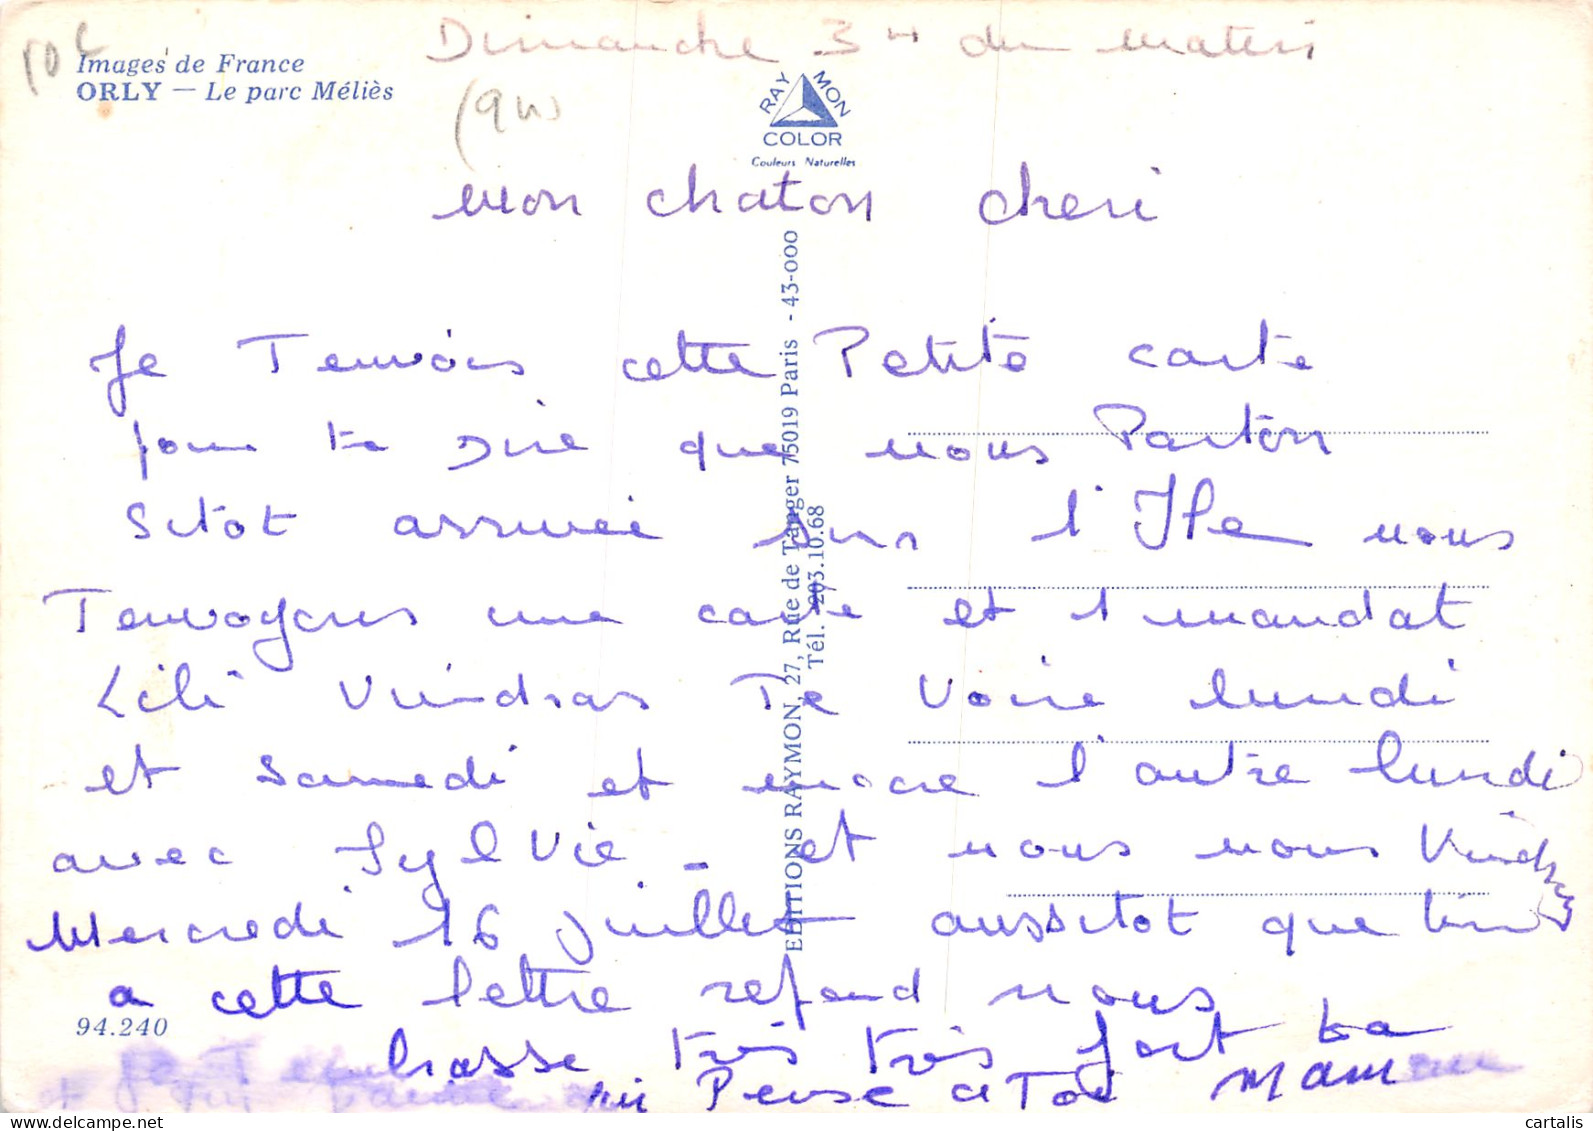 10
Images de France
ORLY — Le parc Méliès
Dimanche 3 H du Matin
RAYMON
COLOR
Couleurs Naturelles
Mon chaton cheri
Je Tenvois cette Petite carte
pour te Dire que nous Parton
Sitot arrivée sur l'Ile nous
Tenvoyons une carte et 1 mandat
Lili Viendras Te Voire lundi
et Samedi et encore l'autre lundi
avec Sylvie - et nous nous
Mercredi 16 juillet aussitot que
a cette lettre refond nous
brasse tris tris fort ta
qui Pense a Toi Maman
94.240
EDITIONS RAYMON, 27, Rue de Tanger 75019 Paris - 43-000
Tél. 203.10.68
cartalis